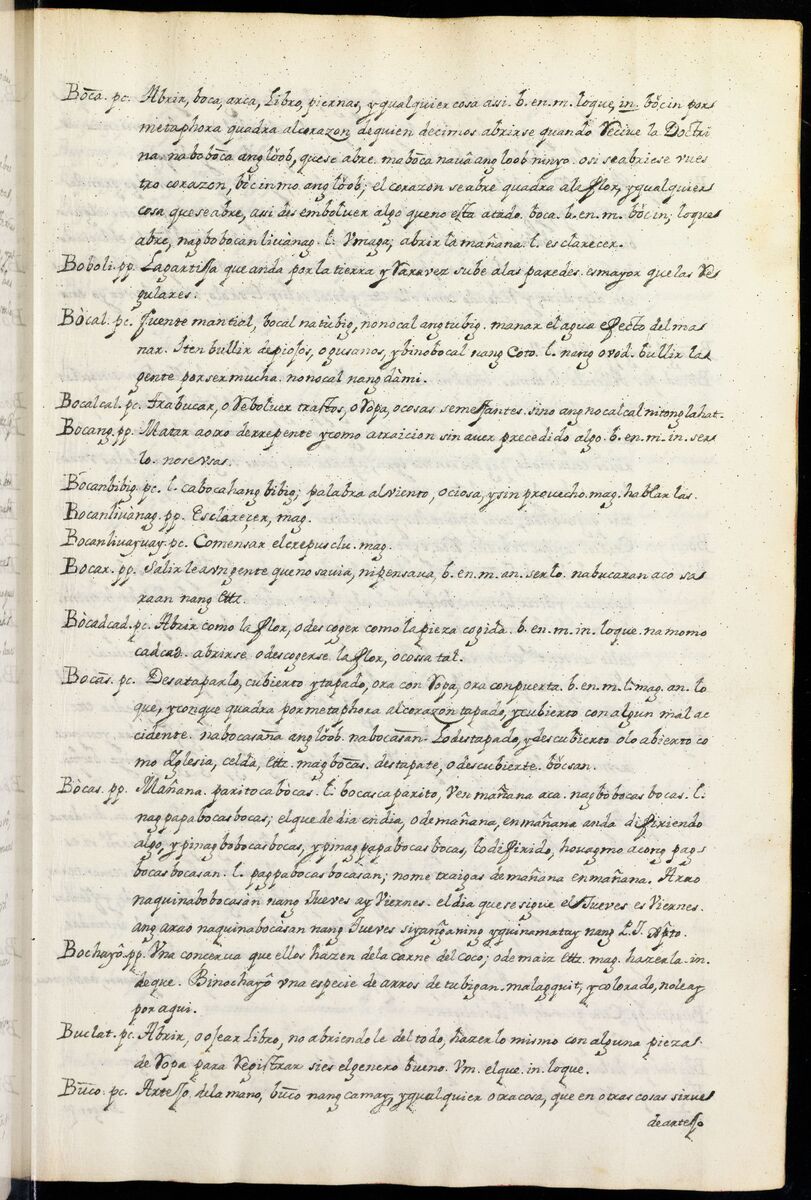 Bōca. pc. Abrir, boca, arca, Libro, piernas, y qualquier cosa assi. b. en. m. loque, in. bŏcin por
metaphora quadra alcorazon dequien decimos abrirse quando Recive la Doctri
na. nabobōca ang lŏob, quese abre. mabōca nauā ang loob ninyo. osi seabriese vues
tro corazon, bŏcinmo ang lŏob; el corazon seabre quadra ala flor, y qualquier
cosa queseabre, asi desemboluer algo queno esta atado. boca. b. en. m. bŏcin; loque
abre, nagbobocanlivànag. l. Vmaga, abrir la mañana. l. esclarecer.
Boboli. pp. Lagartissa que anda por la tierra y Rara vez sube alas paredes. es mayor que las Re
gulares.
Bòcal. pc. Fuente mantial, bocal natùbig, nonocal angtubig. manar el agua efecto del ma
nar. Iten bullir depiojos, o gusanos, y binobocal nang Coto. l. nang ovod. bullir la
gente porsermucha. nonocal nang dàmi.
Bocalcal. pc. Trabucar, o Reboluer trastos, o Ropa, o cosas semejantes. sino ang nocalcal nitong lahat.
Bocang. pp. Matar aotro derrepente y como atraicion sin auer precedido algo. b. en. m. in. ser
lo. nosevsas.
Bócanbibig. pc. l. cabocahang bibig; palabra alviento, ociosa, y sin provecho. mag. hablarlas.
Bocanlivànag. pp. Esclareçer, mag.
Bocanlivayuay. pc. Comensar el crepusclu. mag.
Bocar. pp. Salirle a vn gente queno savia, nipensava, b. en. m. an. serlo. nabucaran aco sa
raan nang Ettz.
Bòcadcad. pc. Abrir como la flor, o descoger como la pieza cogida. b. en. m. in. loque. namomo
cadcad. abrirse o descogerse la flor, o cossa tal.
Bocās. pc. Desataparlo, cubierto y tapado, ora con Ropa, ora con puerta. b. en. m. l. mag. an. lo
que, y conque quadra por metaphora al corazon tapado, y cubierto con algun mal ac
cidente. nabocasāna ang lŏob. nabocāsan. Lo destapado, y descubierto olo abierto co
mo Iglesia, celda, Ettz. mag bocās. destapate, o descubierte. bŏcsan.
Bòcas. pp. Mañana. parito ca bòcas. l. bocas ca parito, Ven mañana aca. nagbobocas bocas. l.
nagpapabocasbocas; elque de dia en dia, o de mañana, en mañana anda difiriendo
algo, y pinagbobocasbocas, y pinagpapabocas bocas, lo difirido, hovagmo acong pag-
bocasbocasan. l. pagpabocasbocasan; nome traigas de mañana en mañana. Arao
naquinabobocasan nang Jueves ay Viernes. el dia que se sigue el Jueves es Viernes.
ang arao naquinabocàsan nang Jueves siyang aning y quinamatay nang P. J. Xpto.
Bochayô. pp. Vna concerua que ellos hazen dela carne del coco; o de maiz Ettz. mag. hazerla. in.
deque. Binochayô vna especie de arros de tubigan. malagquit, y colorado, noleay
por aqui.
Buclat. pc. Abrir, o ojear Libro, no abriendole del todo, hazer lo mismo con alguna pieza
de Ropa para Registrar si es el genero bueno. Vm. elque. in. loque.
Būco. pc. Artejo dela mano, būco nang camay, y qualquier otra cosa, que en otras cosas sirue
de artejo